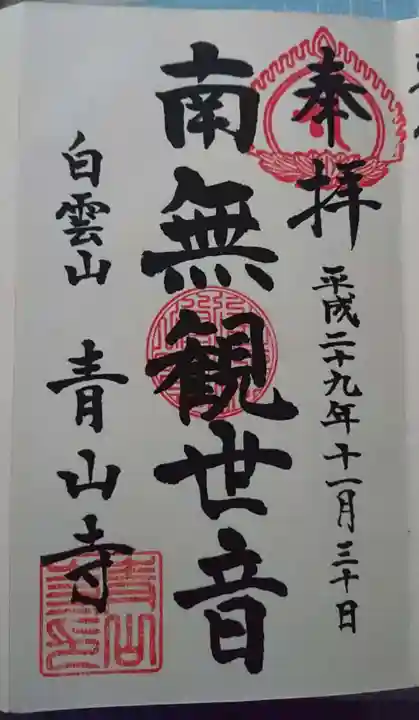 奉拝
平成二十九年十一月三十日
南無観世音
白雲山
青山寺